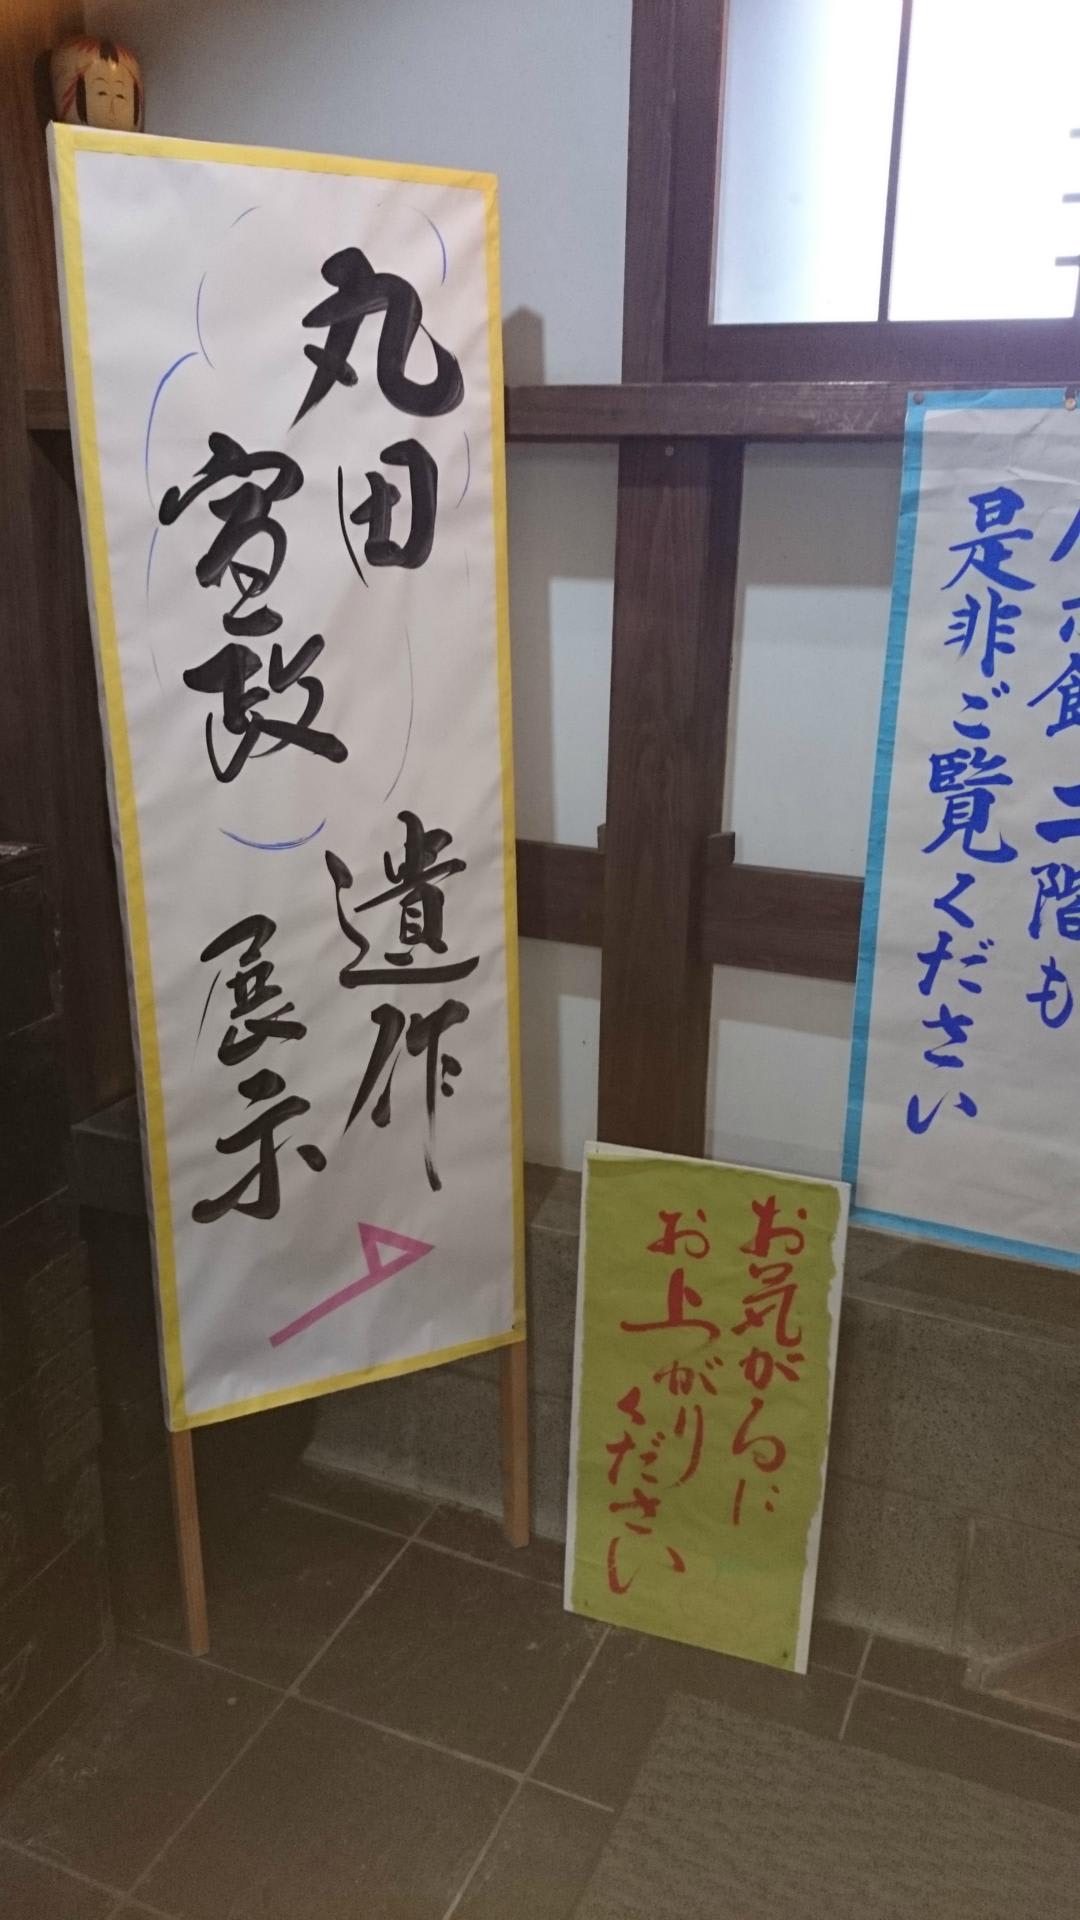 丸田
宣政
遺作
展示
館二階も
是非ご覧ください
お気がるに
お上がり
ください